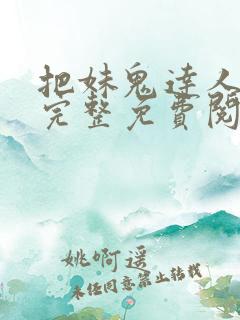 把妹鬼達人
完整免費閱
姚啊遥
未经同意禁止转载